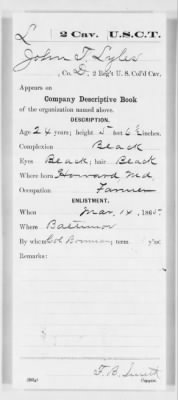 L 2 Cav. U.S.C.T.
John T. Lyles
, Co. D, 2 Reg't U. S. Col'd Cav.
Appears on
Company Descriptive Book
of the organization named above.
DESCRIPTION.
Age 24 years; height 5 feet 6½ inches.
Complexion Black
Eyes Black; hair Black
Where born Howard Md
Occupation Farmer
ENLISTMENT.
When Mar. 14, 1865.
Where Baltimore
By whom Col Bowman; term y'rs.
Remarks:
F. B. Smith
Copyist.